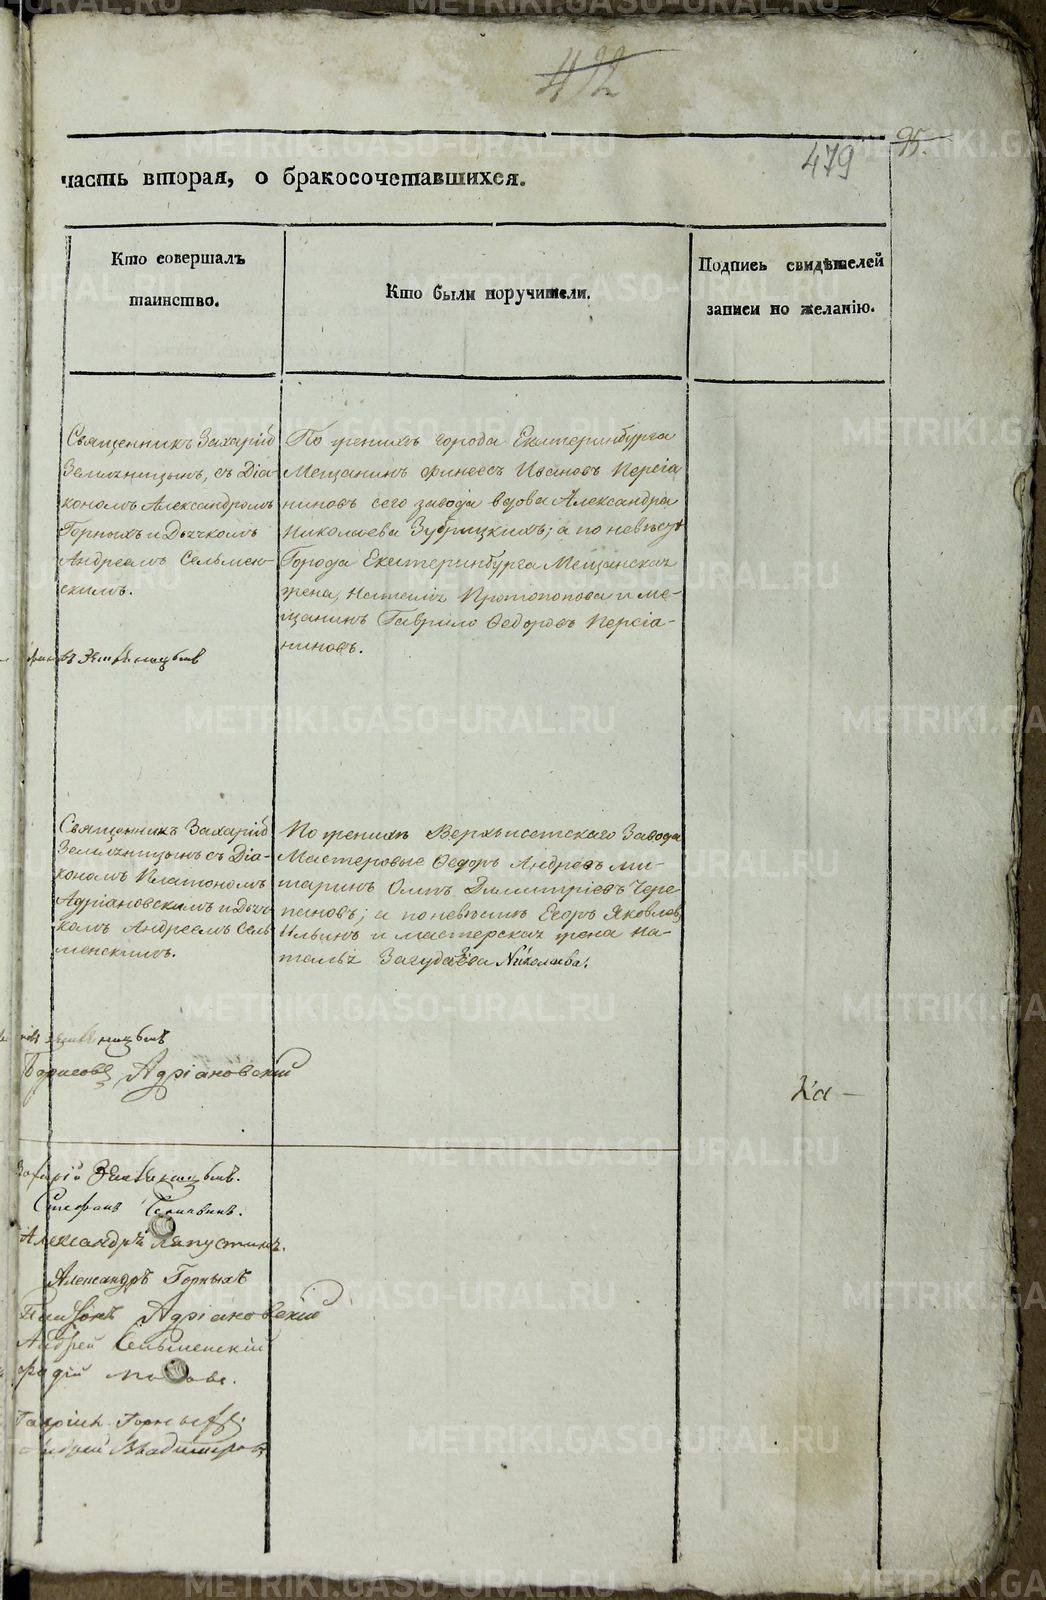 492
479
95.
часть вторая, о бракосочетавшихся.
Кто совершалъ
таинство.
Кто были поручители.
Подпись свидѣтелей
записи по желанію.
Священникъ Захарій
Земляницынъ, съ Діа-
кономъ Александромъ
Горныхъ и Дьячкомъ
Андреемъ Сельмен-
скимъ.
По женихѣ города Екатеринбурга
Мещанинъ Финеесъ Ивановъ Персіа
ниновъ сего завода вдова Александра
Николаева Зубрицкихъ; а по невѣстѣ
Города Екатеринбурга Мещанская
жена, Наталія Протопопова и ме-
щанинъ Гаврило Ѳедоровъ Персіа-
ниновъ.
Земляницынъ
Священникъ Захарій
Земляницынъ съ Діа-
кономъ Платономъ
Адріановскимъ и Дьяч-
комъ Андреемъ Сель
менскимъ.
По женихѣ Верхъисетскаго Завода
Мастеровые Ѳедоръ Андреевъ Ми-
таринъ Димитріевъ Чере
пановъ; а по невѣстѣ Егоръ Яковлевъ
Ильинъ и мастерская жена На-
талья Николаева.
Земляницынъ
Адріановскій
Захарій Земляницынъ.
Стефанъ
Александръ Ляпустинъ.
Александръ Горныхъ
Платонъ Адріановскій
Андрей Сельменскій
Поповъ.
Горныхъ.
Владимировъ
METRIKI.GASO-URAL.RU